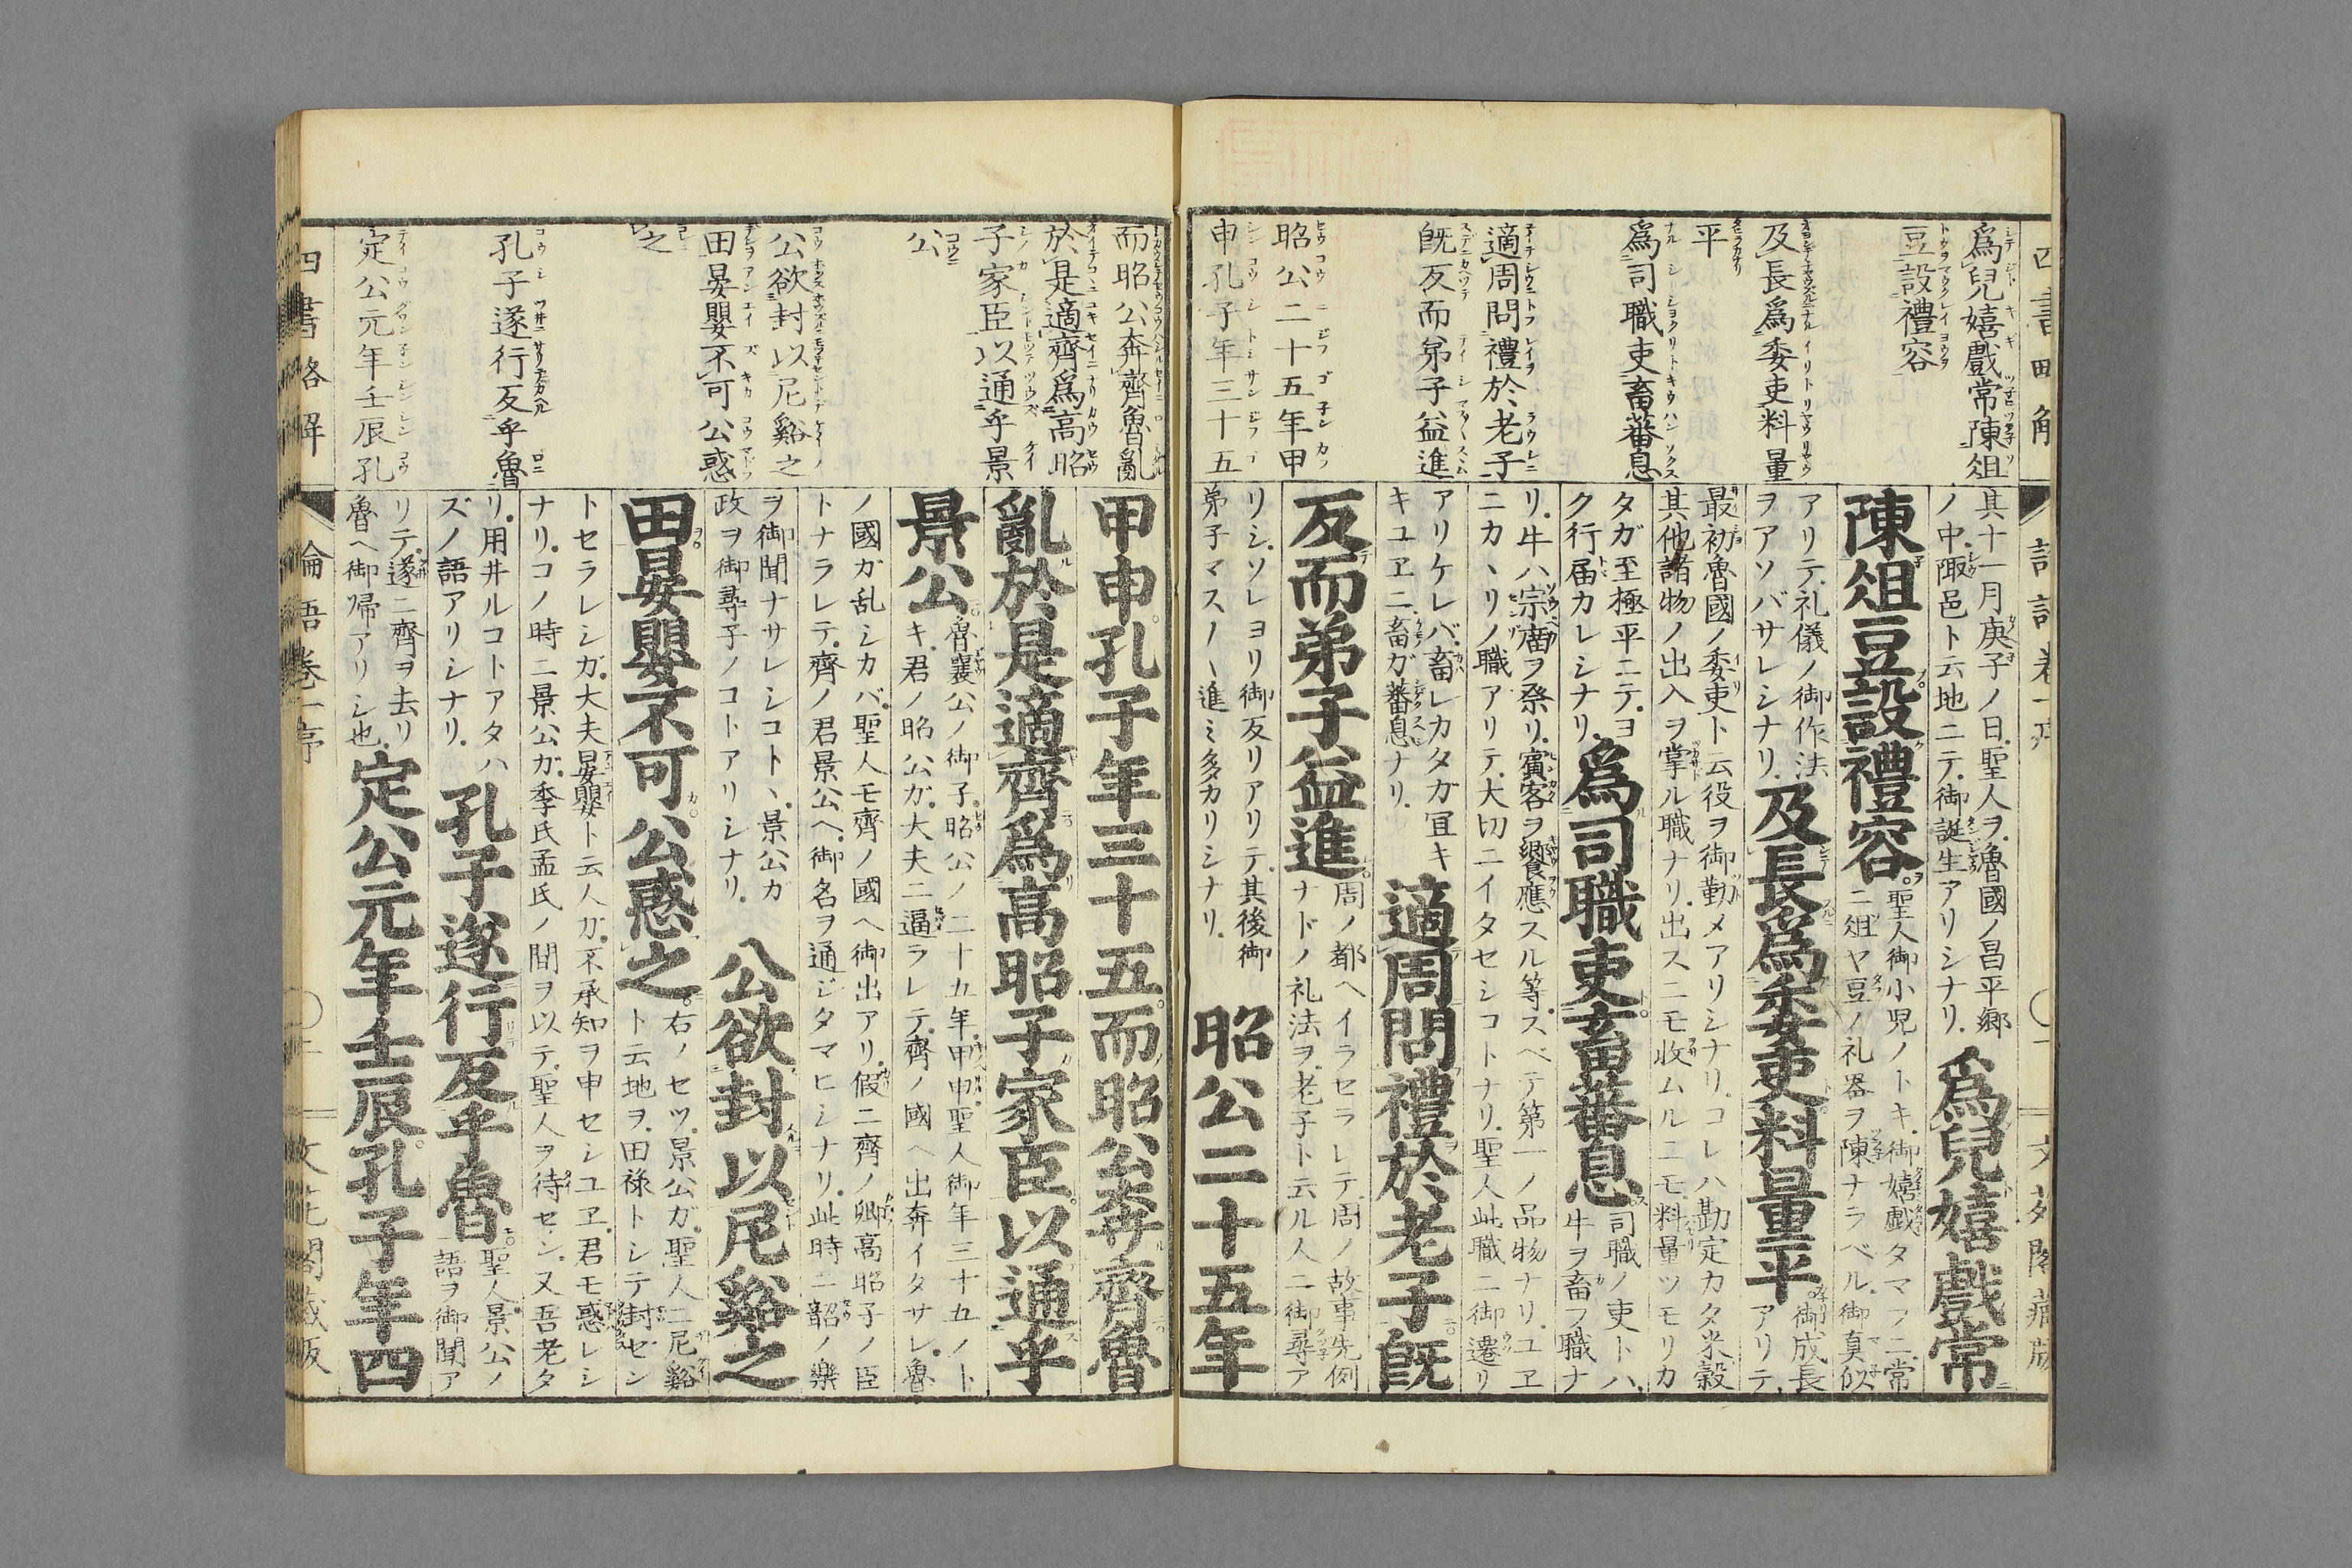 爲兒嬉戲常陳俎
豆設禮容
及長爲委吏料量
平
爲司職吏畜蕃息
適周問禮於老子
旣反而弟子益進
昭公二十五年甲
申孔子年三十五
其十一月庚子ノ日聖人ヲ魯國ノ昌平郷
ノ中陬邑ト云地ニテ御誕生アリシナリ
爲兒嬉戲常
陳俎豆設禮容
聖人御小児ノトキ御嬉戯タマフニ常
ニ俎ヤ豆ノ礼器ヲ陳ナラベル御真似
アリテ礼儀ノ御作法
ヲアソバサレシナリ
及長爲委吏料量平
御成長
アリテ
最初魯國ノ委吏ト云役ヲ御勤メアリシナリコレハ勘定カタ米穀
其他諸物ノ出入ヲ掌ル職ナリ出スニモ收ムルニモ料量ツモリカ
タガ至極平ニテヨ
ク行届カレシナリ
爲司職吏畜蕃息
司職ノ吏トハ
牛ヲ畜フ職ナ
リ牛ハ宗廟ヲ祭リ賓客ヲ饗應スル等スベテ第一ノ品物ナリユヱ
ニカヽリノ職アリテ大切ニイタセシコトナリ聖人此職ニ御遷リ
アリケレバ畜レカタガ宜キ
キユヱニ畜ガ蕃息ナリ
適周問禮於老子旣
反而弟子益進
周ノ都ヘイラセラレテ周ノ故事先例
ナドノ礼法ヲ老子ト云ル人ニ御尋ア
リシソレヨリ御反リアリテ其後御
弟子マス〳〵進ミ多カリシナリ
昭公二十五年
而昭公奔齊魯亂
於是適齊爲高昭
子家臣以通乎景
公
公欲封以尼谿之
田晏嬰不可公惑
之
孔子遂行反乎魯
定公元年壬辰孔
甲申孔子年三十五而昭公奔齊魯
亂於是適齊爲高昭子家臣以通乎
景公
魯襄公ノ御子昭公ノ二十五年甲申聖人御年三十五ノト
キ君ノ昭公ガ大夫ニ逼ラレテ齊ノ國ヘ出奔イタサレ魯
ノ國ガ乱シカバ聖人モ齊ノ國ヘ御出アリ假ニ齊ノ卿高昭子ノ臣
トナラレテ齊ノ君景公ヘ御名ヲ通ジタマヒシナリ此時ニ韶ノ樂
ヲ御聞ナサレシコトヽ景公ガ
政ヲ御尋子ノコトアリシナリ
公欲封以尼谿之
田晏嬰不可公惑之
右ノセツ景公ガ聖人ニ尼谿
ト云地ヲ田禄トシテ封セン
トセラレシガ大夫晏嬰ト云人ガ不承知ヲ申セシユヱ君モ惑レシ
ナリコノ時ニ景公ガ季氏孟氏ノ間ヲ以テ聖人ヲ待セン又吾老タ
リ用井ルコトアタハ
ズノ語アリシナリ
孔子遂行反乎魯
聖人景公ノ
語ヲ御聞ア
リテ遂ニ齊ヲ去リ
魯ヘ御帰アリシ也
定公元年壬辰孔子年四
四書略解
論語卷一序